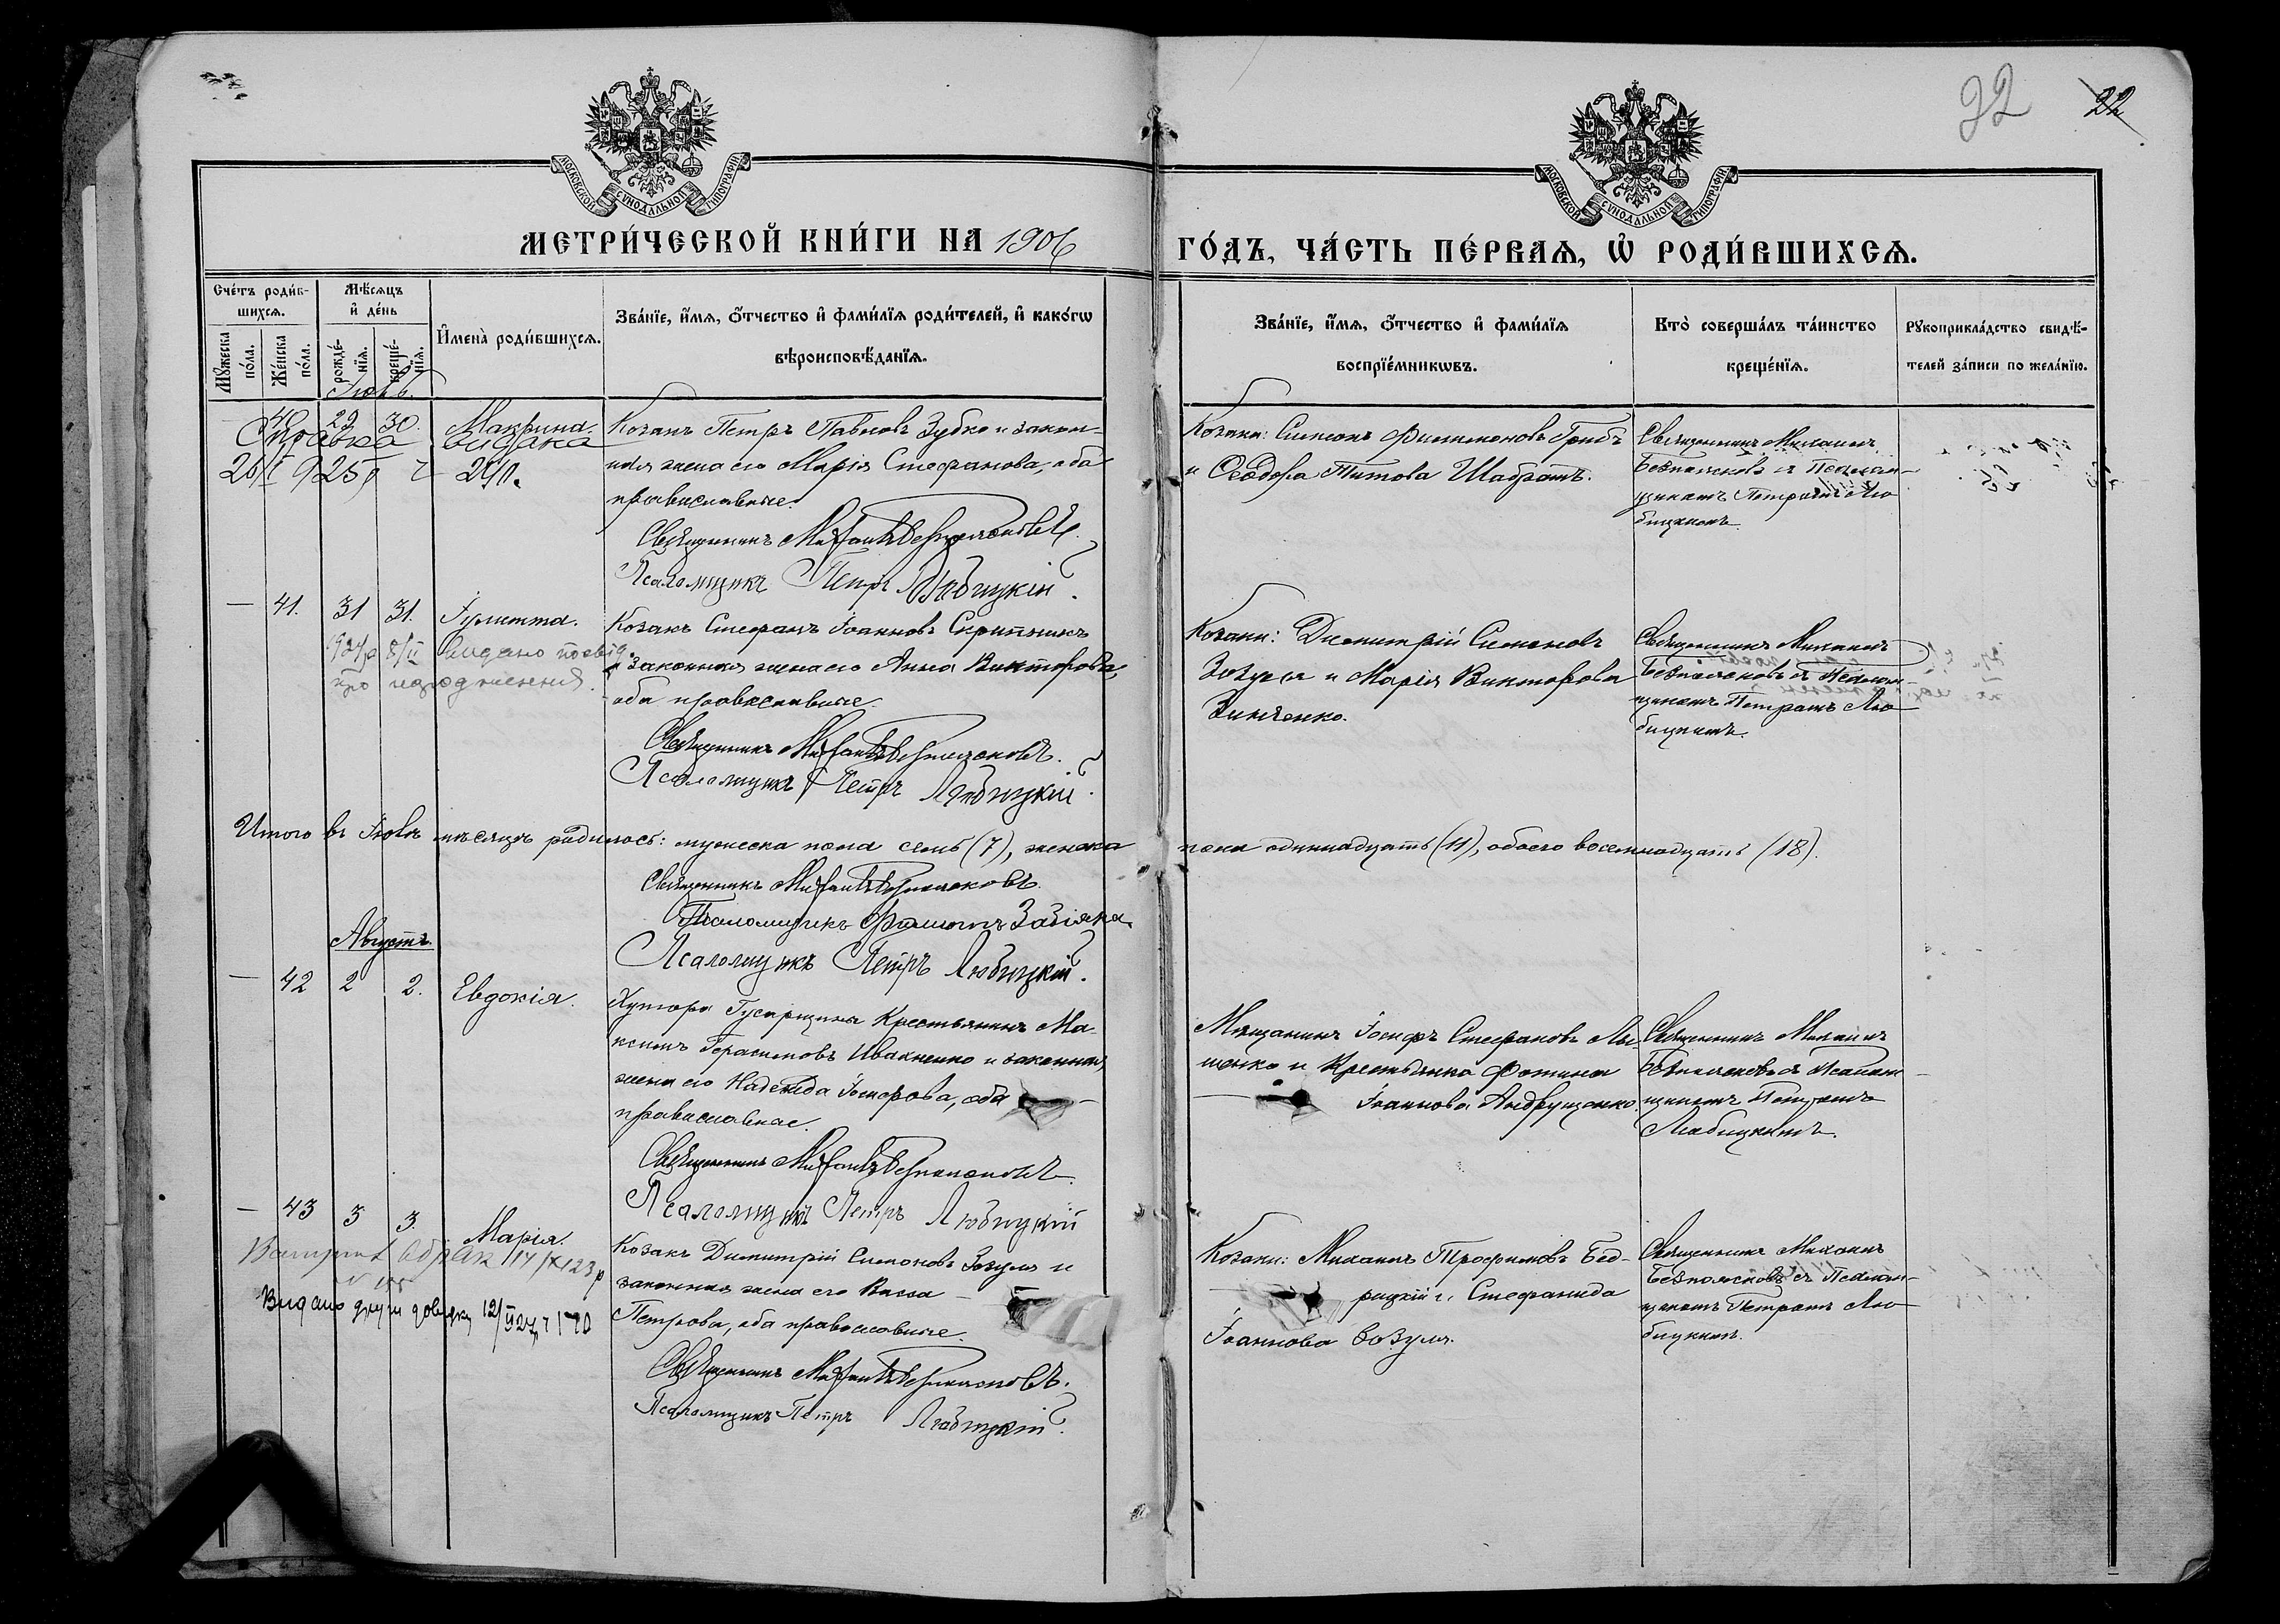 22
22
МОСКОВСКОЙ СѴНОДАЛЬНОЙ ТИПОГРАФІИ
МОСКОВСКОЙ СѴНОДАЛЬНОЙ ТИПОГРАФІИ
МЕТРИ́ЧЕСКОЙ КНИ́ГИ НА 1906
ГО́ДЪ, ЧА́СТЬ ПЕ́РВАЯ, Ѡ РОДИ́ВШИХСЯ.
Счетъ родив-
шихся.
Мужеска
пола.
Женска
пола.
Мѣсяцъ
и день
рожде-
нія.
креще-
нія.
Имена родившихся.
Званіе, имя, отчество и фамилія родителей, и какогѡ
вѣроисповѣданія.
Званіе, имя, отчество и фамилія
воспріемникѡвъ.
Кто совершалъ таинство
крещенія.
Рукоприкладство свидѣ-
телей записи по желанію.
Іюль.
40 29 30. Макрина.
Козакъ Петръ Павловъ Зубко и закон-
ная жена его Марія Стефанова, оба
православные.
Священникъ Михаилъ Безпалсковъ.
Псаломщикъ Петръ Любицкій.
Козаки: Симеонъ Филимоновъ Грибъ
и Ѳеодора Титова Шабратъ.
Священникъ Михаилъ
съ Псалом-
щикомъ Петромъ Лю-
бицкимъ.
— 41. 31 31. Іулитта.
видано
про народження.
Козакъ Стефанъ Іоанновъ Скрипникъ
и законная жена его Анна Викторова,
оба православные.
Священникъ Михаилъ
Псаломщикъ Петръ Любицкій.
Козаки: Димитрій Симоновъ
Зозуля и Марія Викторова
Зинченко.
Священникъ Михаилъ
съ Псалом-
щикомъ Петромъ Лю-
бицкимъ.
Итого въ Іюлѣ мѣсяцѣ родилось: мужеска пола семь (7), женска
пола одиннадцать (11), обоего восемнадцать (18).
Священникъ Михаилъ
Псаломщикъ Филиппъ Забіяка.
Псаломщикъ Петръ Любицкій.
Августъ.
— 42 2 2. Евдокія.
Хутора Гусарщина Крестьянинъ Ма-
ксимъ Герасимовъ Ивахненко и законная
жена его Надежда Іосифова, оба —
православные.
Священникъ Михаилъ
Псаломщикъ Петръ Любицкій
Мѣщанинъ Іосифъ Стефановъ Лы-
шенко и Крестьянка Фотина
— Іоаннова Андрущенко.
Священникъ Михаилъ
съ Псалом-
щикомъ Петромъ
Любицкимъ.
— 43 3 3. Марія.
Козакъ Димитрій Симоновъ Зозуля и
законная жена его Васса —
Петрова, оба православные.
Священникъ Михаилъ
Псаломщикъ Петръ Любицкій.
Видано другу довідку
Козаки: Михаилъ Трофимовъ Бед-
— рицкій и Стефанида
Іоаннова Зозуля.
Священникъ Михаилъ
съ Псалом-
щикомъ Петромъ Лю-
бицкимъ.